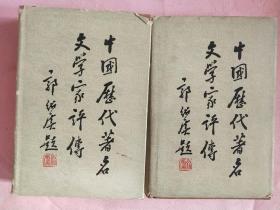 中國歷代著名
文学家评傳
郭绍虞题
中國歷代著名
文学家评傳
郭绍虞题